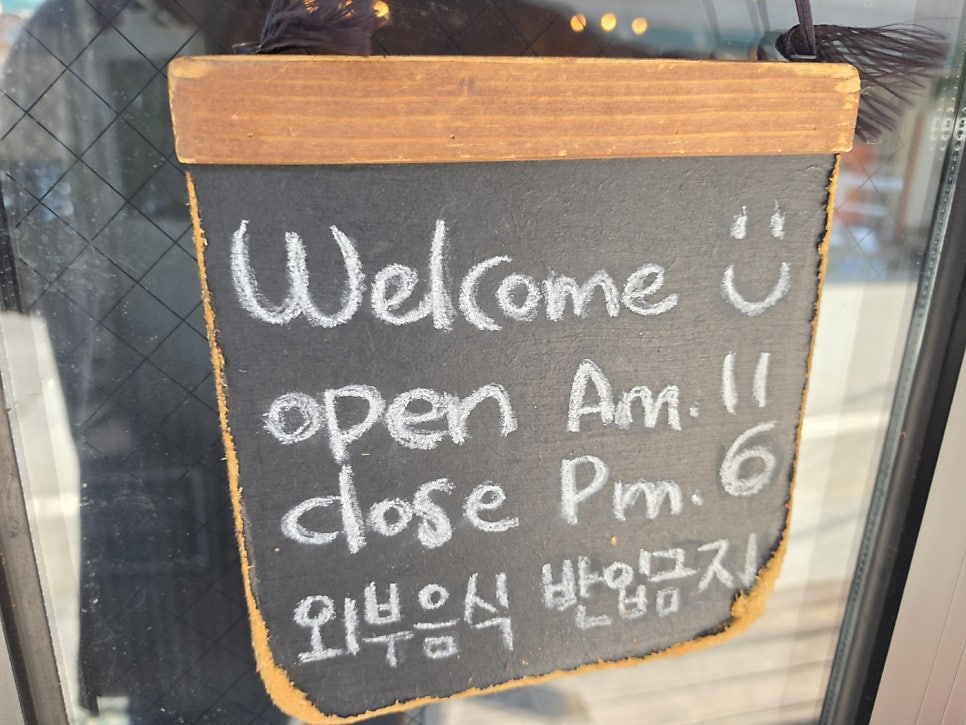 Welcome
open Am. 11
close Pm. 6
외부음식 반입금지